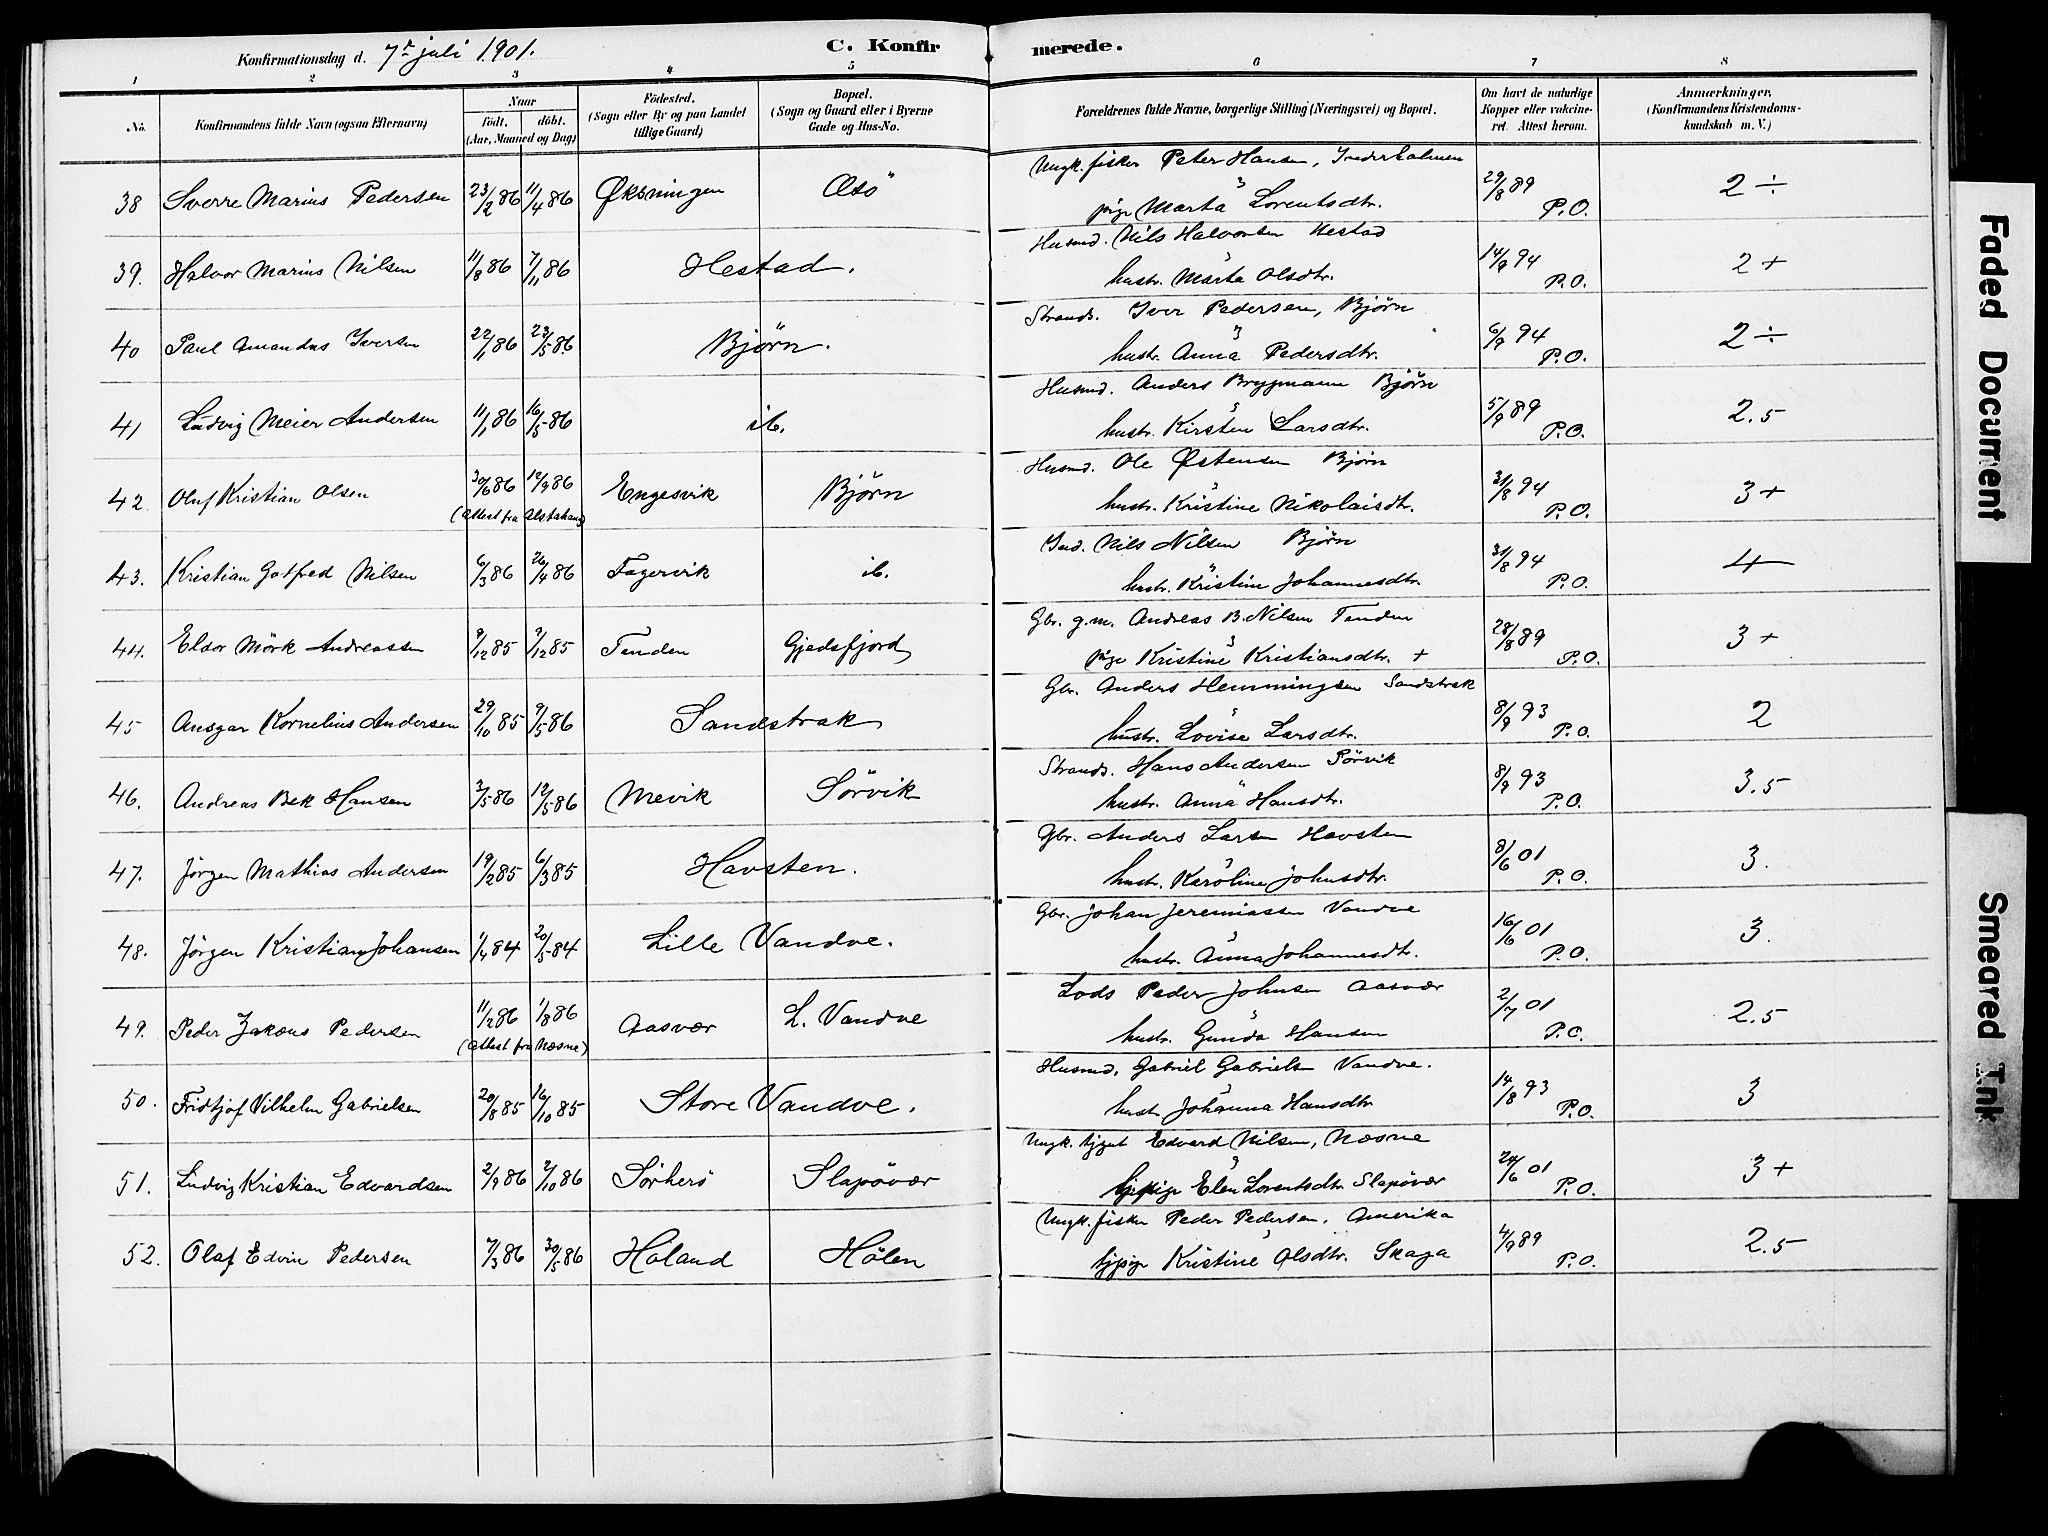 Konfirmationsdag d. 7de juli 1901. C. Konfirmerede.
1 2 3 4 5 6 7 8
No. Konfirmandens fulde Navn (ogsaa Efternavn) Naar født. døbt. (Aar, Maaned og Dag) Fødested. (Sogn eller By og paa Landet tillige Gaard) Bopæl. (Sogn og Gaard eller i Byerne Gade og Hus-No. Forældrenes fulde Navne, borgerlige Stilling (Næringsvei) og Bopæl. Om havt de naturlige Kopper eller vakcineret. Attest herom. Anmærkninger. (Konfirmandens Kristendomskundskab m. V.)
38 Sverre Marius Pedersen 23/2 86 11/4 86 Øksningen Ø Ungk. fisker Peter Hansen, Inderholmen 29/8 89 2 ÷
pige Marta Lorentsdtr. P.O.
39. Halvor Marius Nilsen 11/8 86 7/11 86 Hestad. Husmd. Nils Halvorsen Hestad 14/9 94 2 +
hustr. Marta Olsdtr. P.O.
40 Paul Amandus Iversen 22/1 86 23/5 86 Bjørn. Strands. Iver Pedersen, Bjørn 6/9 94 2 ÷
hustr. Anna Pedersdtr. P.O.
41 Ludvig Meier Andersen 11/1 86 16/5 86 ib. Husmd. Anders Brygmann Bjørn 5/9 89 2.5
hustr. Kirsten Larsdtr. P.O.
42. Oluf Kristian Olsen 30/6 86 12/9 86 Engesvik Bjørn Husmd. Ole Østensen Bjørn 31/8 94 3 +
(Attest fra Alstahaug) hustr. Kristine Nikolaisdtr. P.O.
43. Kristian Gotfred Nilsen 6/3 86 26/4 86 Fagervik ib. Ind. Nils Nilsen Bjørn 31/8 94 4
hustr. Kristine Johannesdtr. P.O.
44. Eldor Mörk Andreassen 9/12 85 9/12 85 Tenden Gjedsfjord Gbr. g.m. Andreas B. Nilsen Tenden 28/8 89 3 +
pige Kristine Kristiansdtr. + P.O.
45 Ansgar Kornelius Andersen 29/10 85 9/5 86 Sandstrak Gbr. Anders Hemmingsen Sandstrak 8/9 93 2
hustr. Lovise Larsdtr. P.O.
46. Andreas Bek Hansen 3/5 86 12/5 86 Mevik Sörvik Strands. Hans Andersen Sörvik 8/9 93 3.5
hustr. Anna Hansdtr. P.O.
47. Jörgen Mathias Andersen 19/2 85 6/3 85 Havsten. Gbr. Anders Larsen Havsten 8/6 01 3.
hustr. Karoline Johnsdtr. P.O.
48. Jörgen Kristian Johansen 1/4 84 20/5 84 Lille Vandve. Gbr. Johan Jeremiassen Vandve 16/6 01 3.
hustr. Anna Johannesdtr. P.O.
49. Peder Jakøus Pedersen 11/2 86 1/8 86 Aasvær L. Vandve Lods Peder Johnsen Aasvær 2/7 01 2.5
(Attest fra Næsne) hustr. Gunda Hansen P.O.
50. Fridtjof Vilhelm Gabrielsen 20/8 85 16/10 85 Store Vandve. Husmd. Gabriel Gabrielsen Vandve. 14/8 93 3
hustr. Johanna Hansdtr P.O.
51. Ludvig Kristian Edvardsen 2/9 86 2/10 86 Sörherö Slapövær Ungk. tjgut Edvard Nilsen, Næsne 24/6 01 3 +
tjpige Elen Lorentsdtr Slapövær P.O.
52. Olaf Edvin Pedersen 7/3 86 30/5 86 Haland Hölen Ungk. fisker Peder Pedersen, Amerika 4/9 89 2.5
tjpige Kristine Olsdtr. Skaga P.O.
Faded Document
Smeared Ink